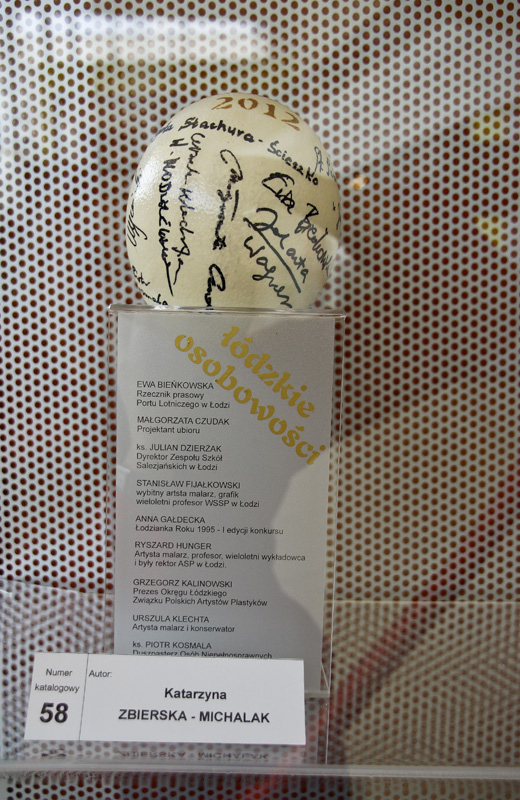 2012
Stachura-Ścieszko
Ewa Bieńkowska
Jolanta
Wagner
łódzkie
osobowości
EWA BIEŃKOWSKA
Rzecznik prasowy
Portu Lotniczego w Łodzi
MAŁGORZATA CZUDAK
Projektant ubioru
ks. JULIAN DZIERŻAK
Dyrektor Zespołu Szkół
Salezjańskich w Łodzi
STANISŁAW FIJAŁKOWSKI
wybitny artsta malarz, grafik
wieloletni profesor WSSP w Łodzi
ANNA GAŁDECKA
Łodzianka Roku 1995 - I edycji konkursu
RYSZARD HUNGER
Artysta malarz, profesor, wieloletni wykładowca
i były rektor ASP w Łodzi.
GRZEGORZ KALINOWSKI
Prezes Okręgu Łódzkiego
Związku Polskich Artystów Plastyków
URSZULA KLECHTA
Artysta malarz i konserwator
ks. PIOTR KOSMALA
Duszpasterz Osób Niepełnosprawnych
Numer
katalogowy
58
Autor:
Katarzyna
ZBIERSKA - MICHALAK